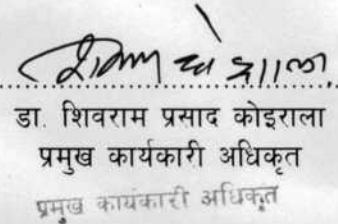 डा. शिवराम प्रसाद कोइराला
प्रमुख कार्यकारी अधिकृत
प्रमुख कार्यकारी अधिकृत